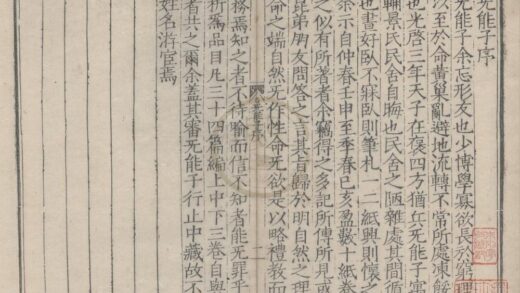 无能子序
无能子余忘形友也少博學寡欲長於窮理
以至於命黃巢亂避地流轉不常所處凍餒
也光啓三年天子在褒四方猶兵无能子寓
輔景氏民舍自晦也民舍之陋雜處其間循
也晝好臥不寐臥則筆札一二紙興則懷之
余示自仲春壬申至季春己亥盈數十紙卷
之似有所著者余竊得之多記所傳所見或
昆弟朋友問答之言其旨歸於明自然之理
命之端自然无作性命无欲是以略禮教而
无能子序
務焉知之者不待喻而信不知者能无罪乎
析為品目凡三十四篇編上中下三卷自與
者共之爾余蓋具審无能子行止中藏故不
姓名游宦焉